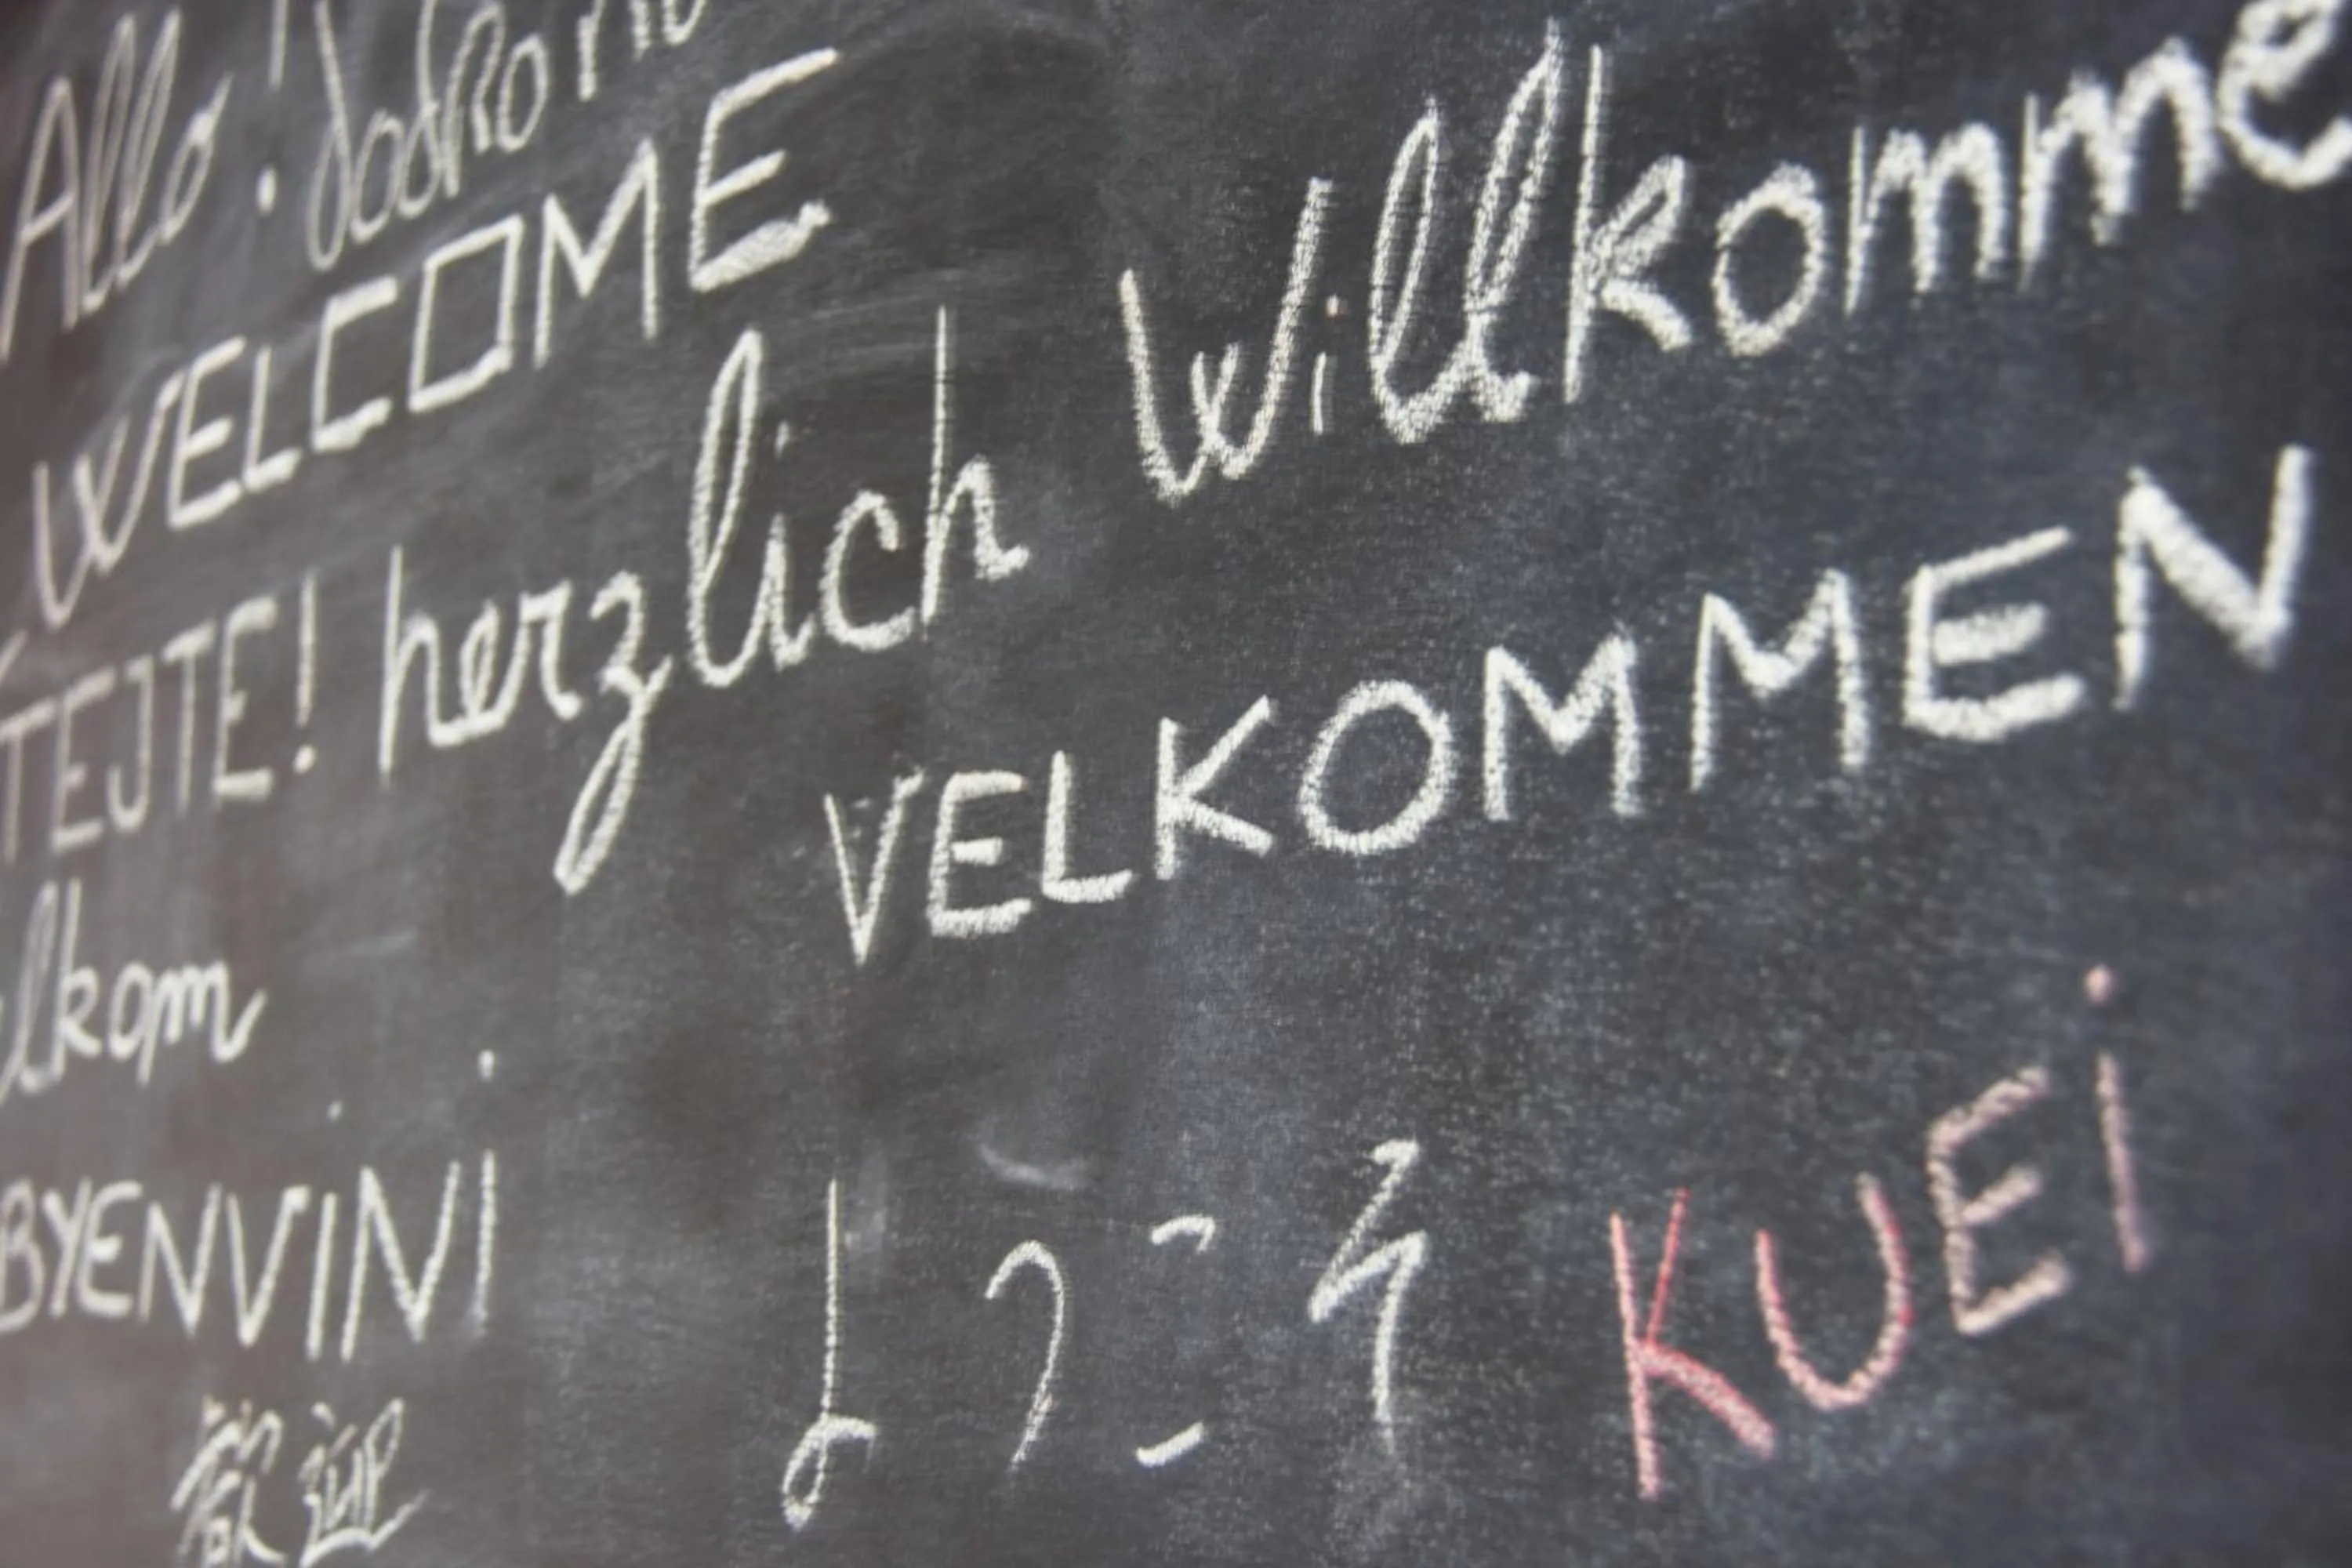 Allo
WELCOME
TEJTE! herzlich Willkomme
VELKOMMEN
lkom
BYENVINI
ようこそ
KUEI
歓迎